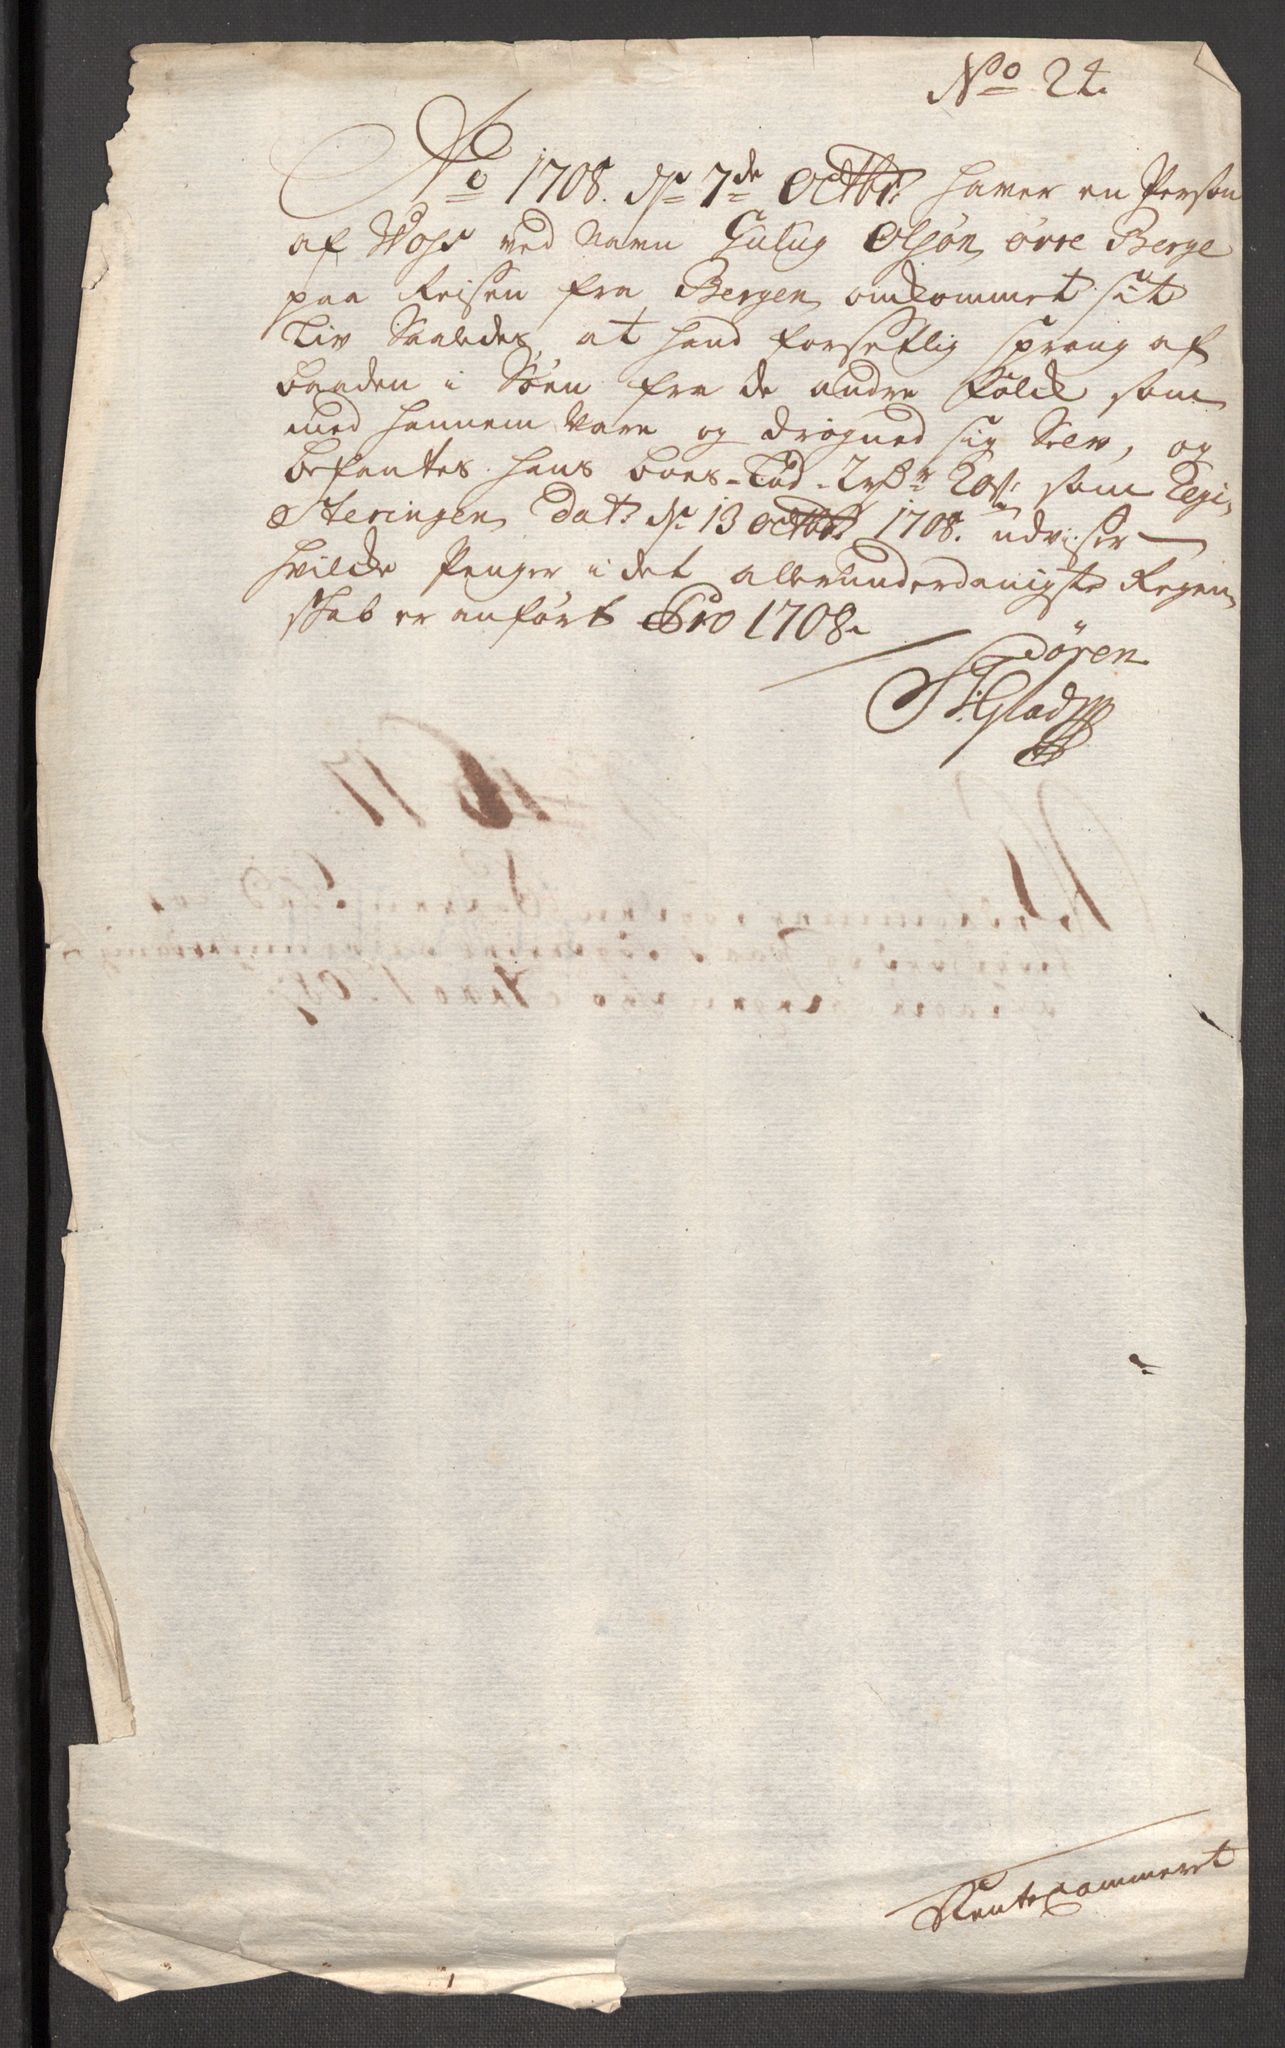 No 24.
Ao 1708. d. 7de Octbr: haver en Person
af Woss ved Navn Gulug Olsøn øvre Berge
paa Reisen fra Bergen omkommet sit
Liv Saaledes, at hand forsetlig sprang af
baaden i Søen fra de andre Folck som
med hannem vare og drogned sig Selv, og
befantes hans boes-Lod - 2 rdr 20 s: som Regi¬
steringen dat: d. 13 Octbr: 1708. udviser
hvilcke Penger i det allerunderdanigste Regen¬
skab er anført Pro 1708.
Gladtz
Rentecammeret